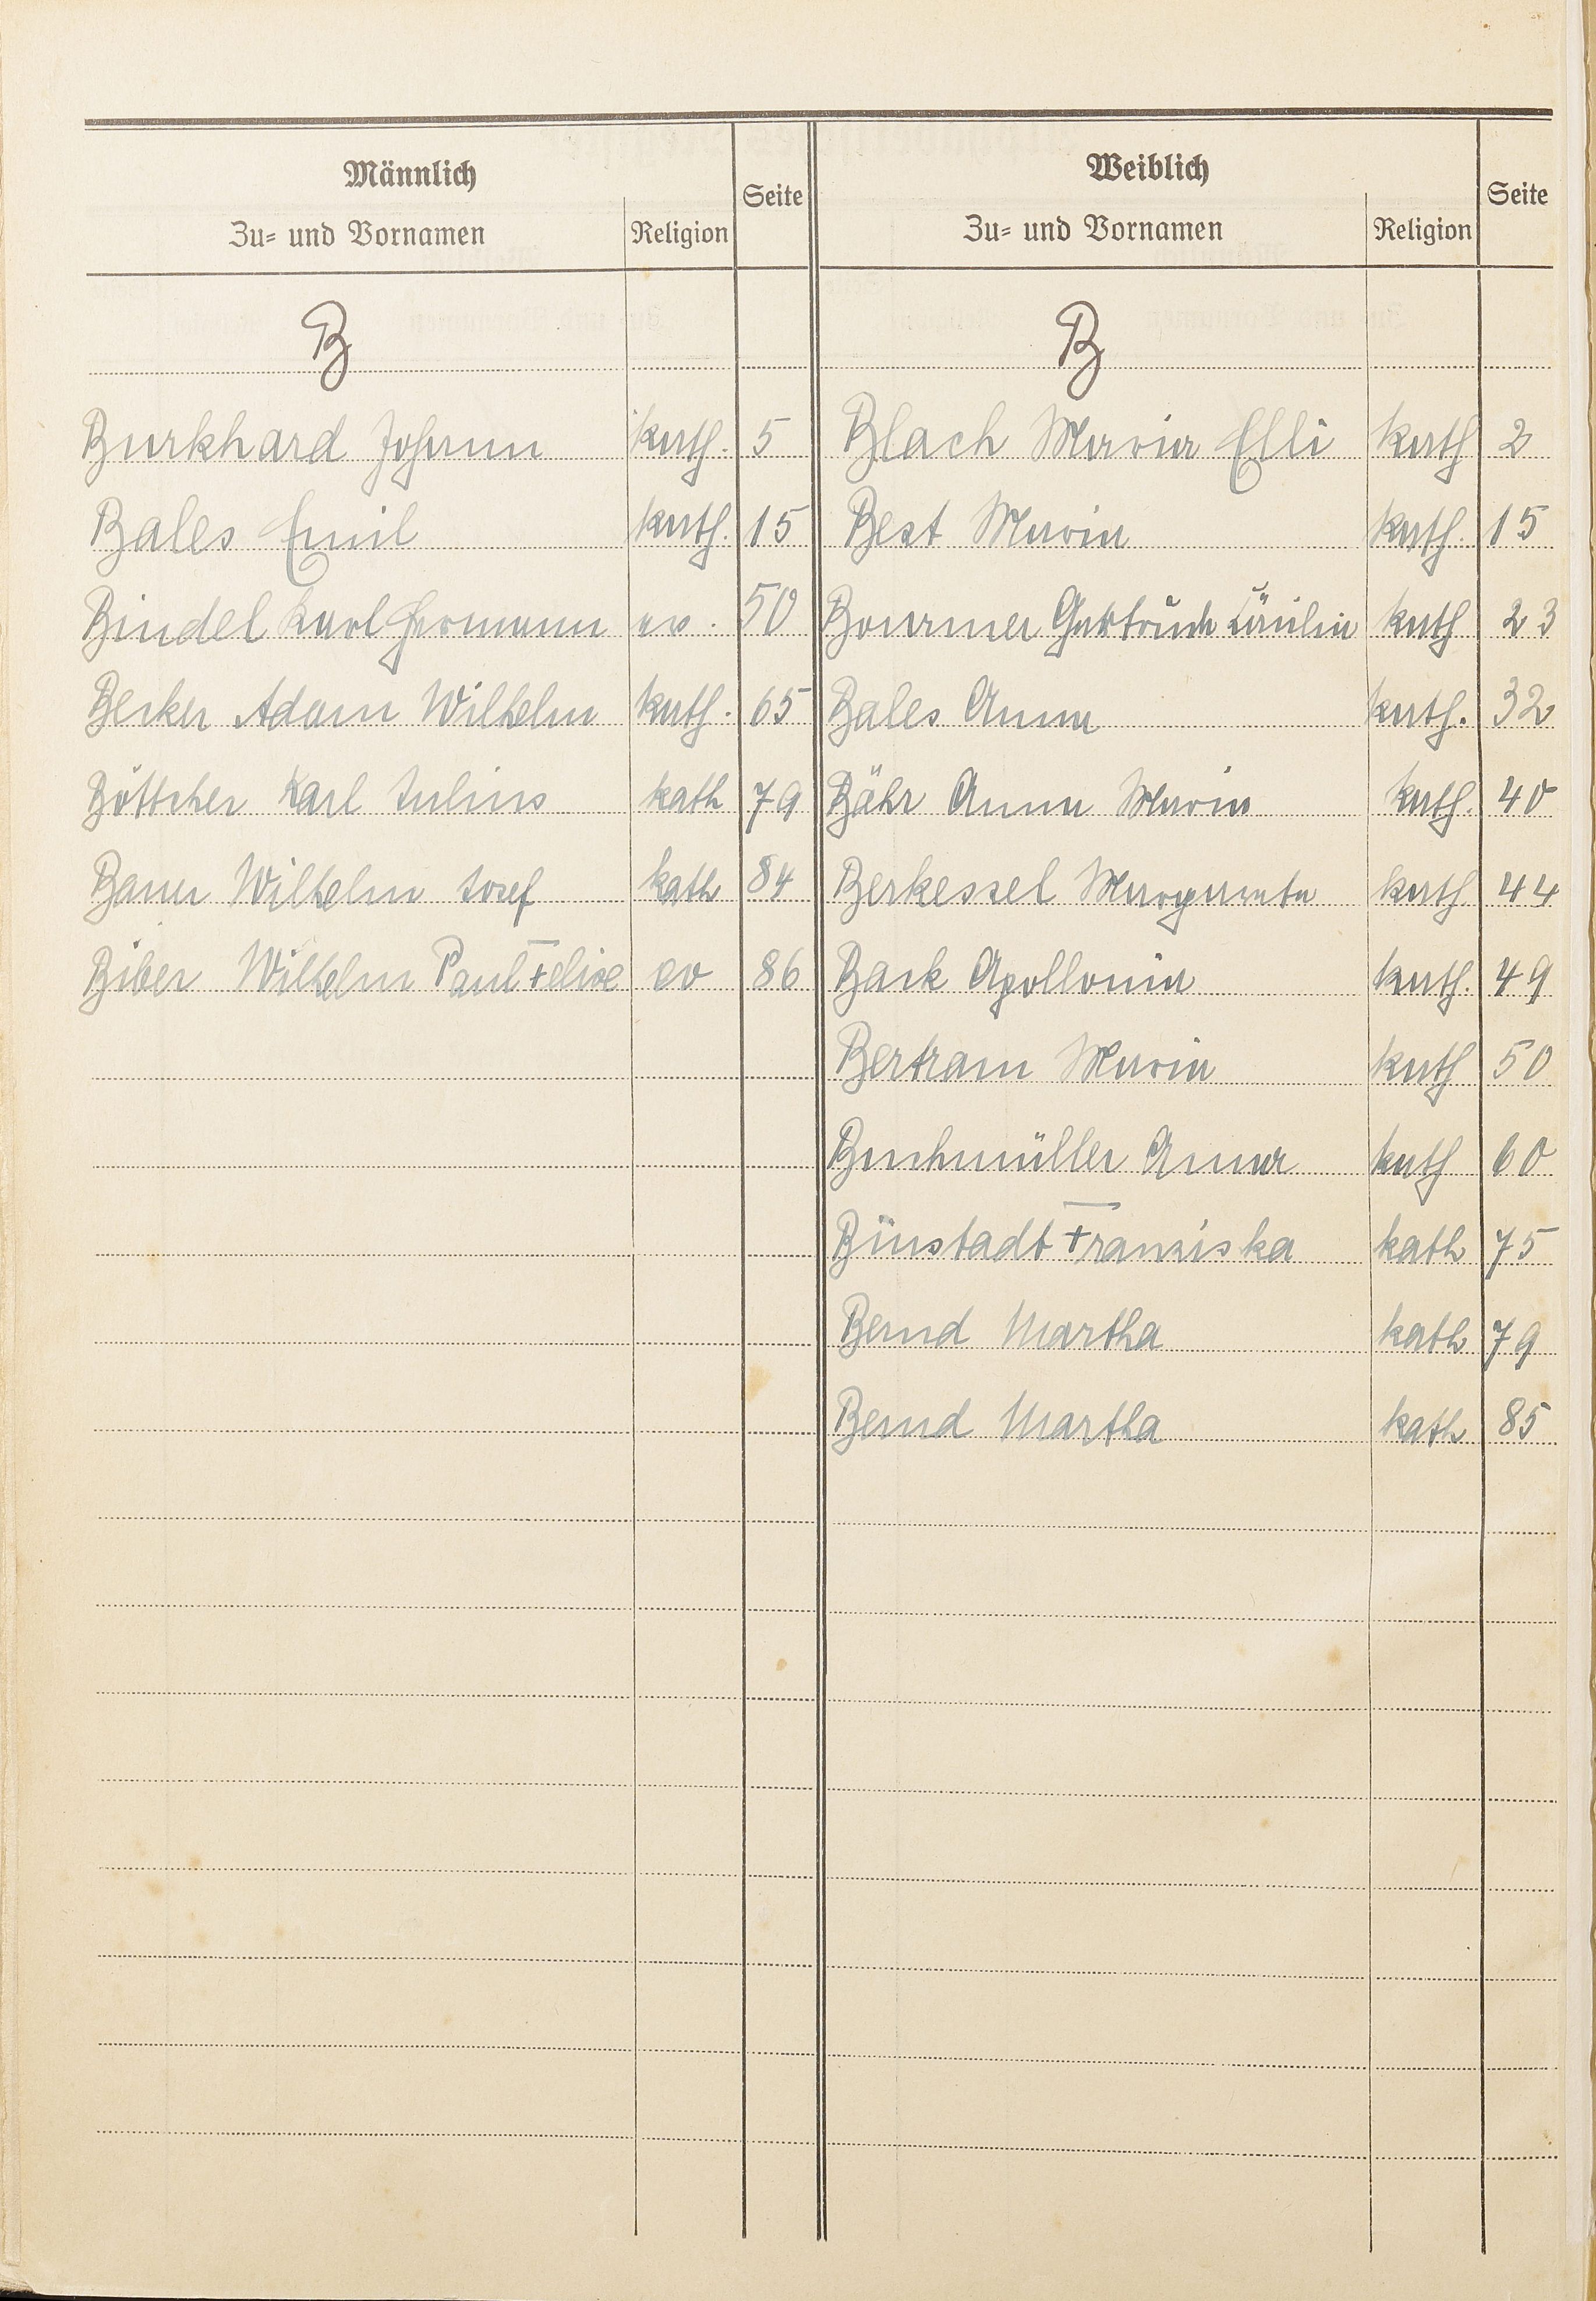 Männlich
Zu- und Vornamen
Religion
Seite
B
Burkhard Johann kath. 5
Bales Emil kath. 15
Bindel Karl Hermann ev. 50
Becker Adam Wilhelm kath. 65
Böttcher Karl Julius kath 79
Bauer Wilhelm Josef kath 84
Biber Wilhelm Paul Felix ev 86
Weiblich
Zu- und Vornamen
Religion
Seite
B
Blach Maria Elli kath 2
Best Maria kath. 15
Gertrude kath 23
Bales Anna kath. 32
Bähr Anna Maria kath. 40
Berkessel Margareta kath 44
Back Apollonia kath. 49
Bertram Maria kath 50
Buchmüller Anna kath 60
Binstadt Franziska kath 75
Bernd Martha kath 79
Bernd Martha kath 85